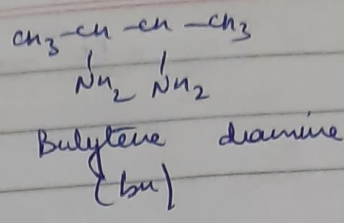 CH3-CH CH-CH3
NH2 NH2
Butylene diamine
(bn)